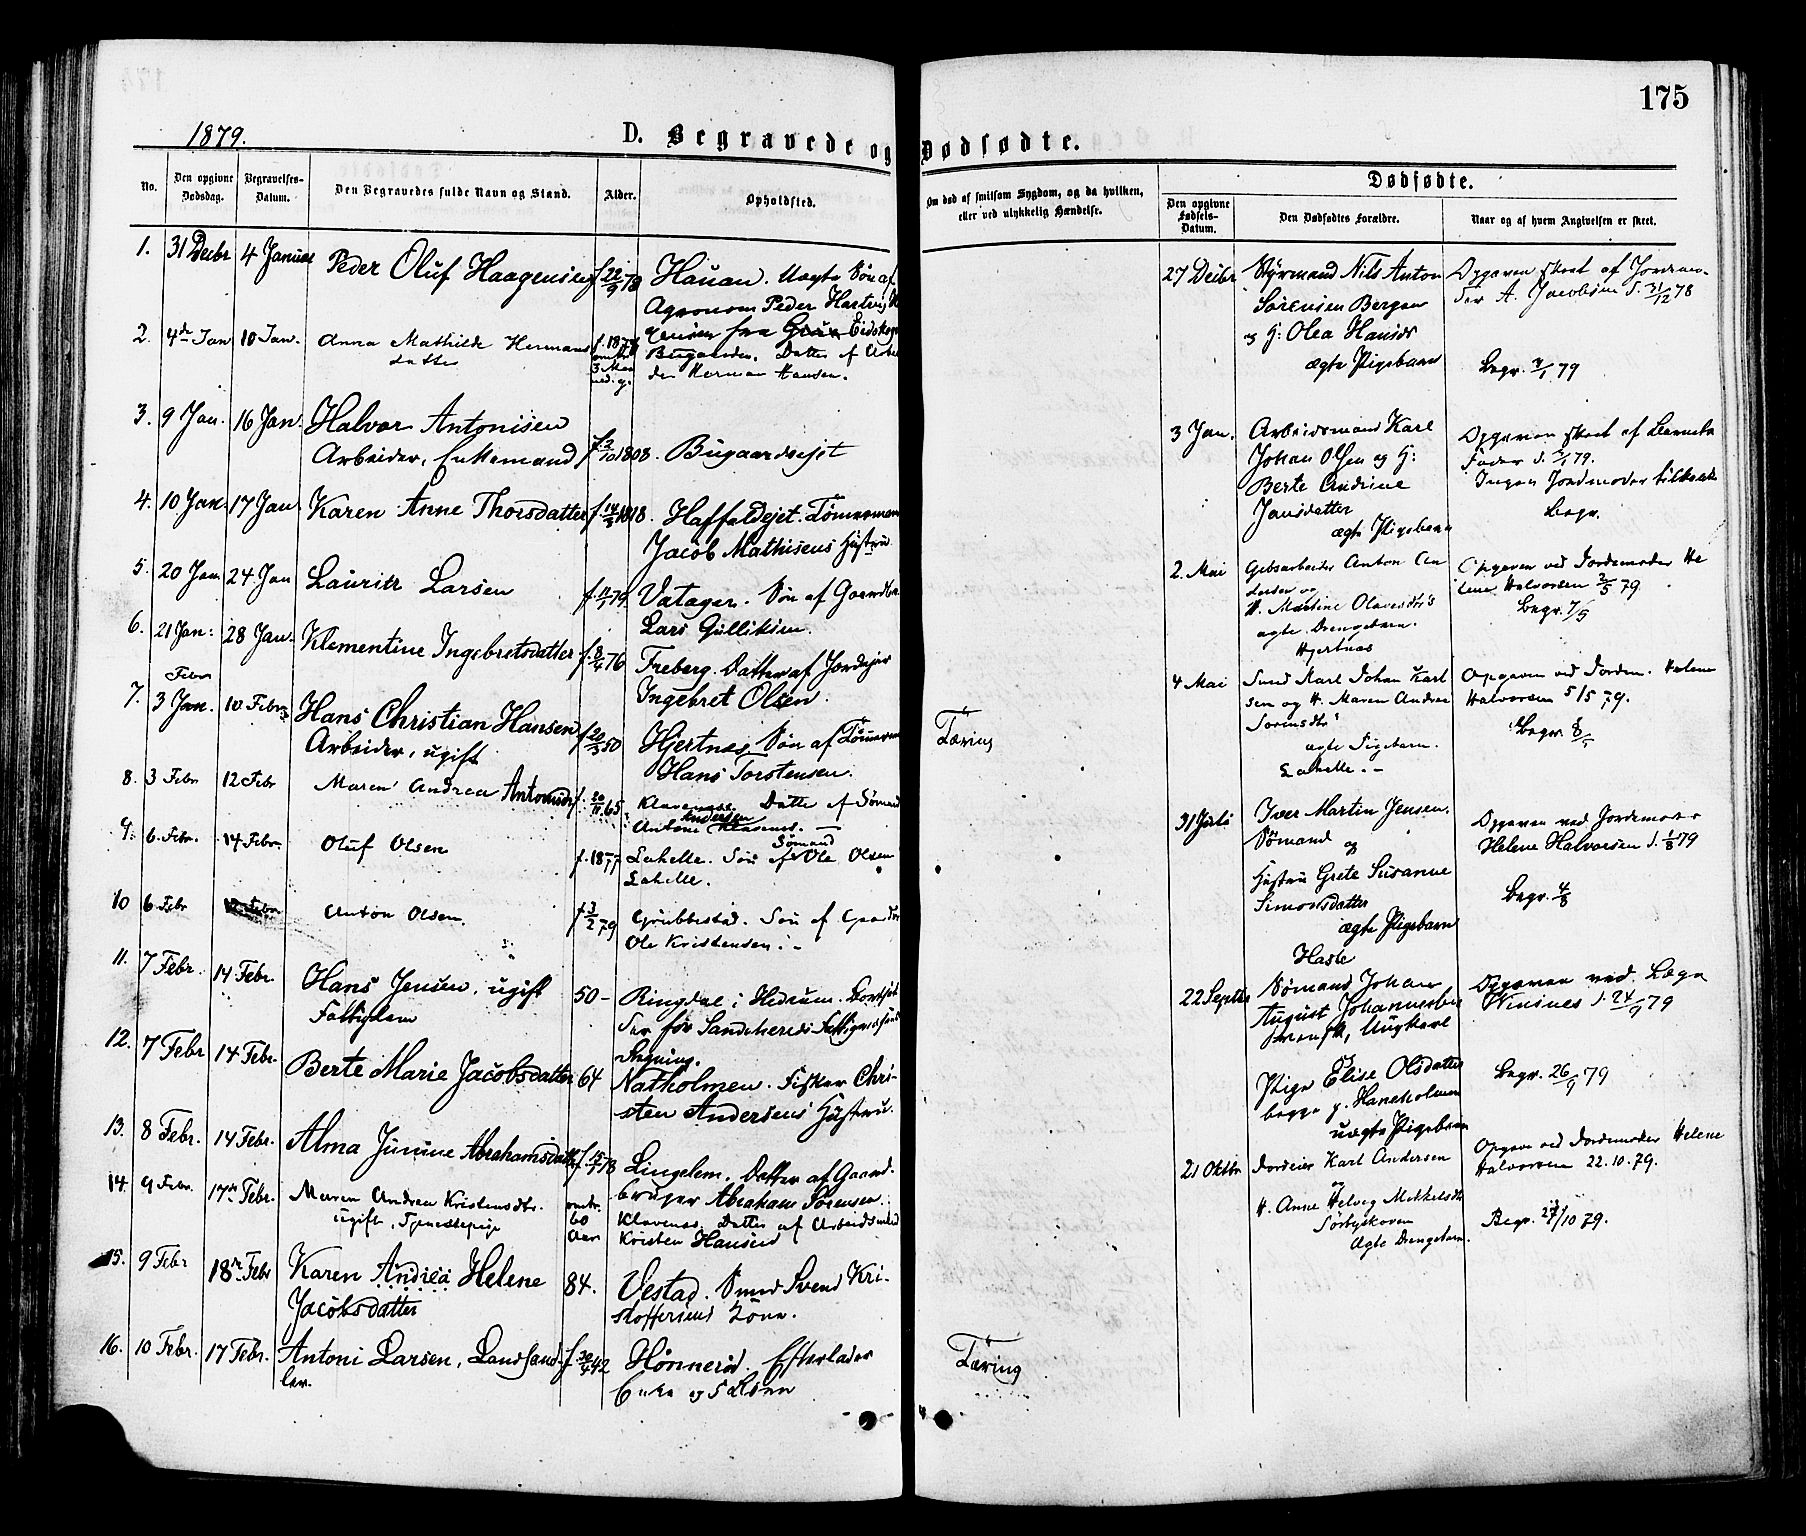 175
1879.
D. Begravede og Dødfødte.
No.
Den opgivne Dødsdag.
Begravelses-Datum.
Den Begravedes fulde Navn og Stand.
Alder.
Opholdsted.
Om død af smitsom Sygdom, og da hvilken, eller ved ulykkelig Hændelse.
Dødfødte.
Den opgivne Fødsels-Datum.
Den Dødfødtes Forældre.
Naar og af hvem Angivelsen er skeet.
1. 31 Decbr 4 Januar Peder Oluf Haagensen f. 22/9 78 Hauan. Uægte Søn af
Agronom Peder Hartvig
fra Eidskog
2. 4de Jan 10 Jan. Anna Mathilde Hermans
datter
f. 1878
omtrt
3 Maaned. g.
Bugaarden. Datter af Arbei
der Herman Hansen.
3. 9 Jan. 16 Jan. Halvor Antonisen
Arbeider, Enkemand f. 2/10 1808. Bugaardsejet
4. 10 Jan. 17 Jan. Karen Anne Thorsdatter f. 14/5 1818. Haffaldejet. Tømmerman
Jacob Mathisens Hustru
5. 20 Jan 24 Jan Lauritz Larsen f. 11/1 79 Vatager. Søn af Gaardbr
Lars Gulliksen.
6. 21 Jan: 28 Jan. Klementine Ingebretsdatter f. 8/4 76 Freberg. Datter af Jordejer
Ingebret Olsen.
Febr
7. 3 Jan. 10 Febr. Hans Christian Hansen
Arbeider, ugift f. 20/3 50 Hjertnes Søn af Tømmerm
Hans Torstensen.
Tæring
8. 3 Febr 12 Febr Maren Andrea Antonisdtr f. 20/11 65. Klavenæss. Datter af Sømand
Antoni Andersen Klavenes. —
9. 6. Febr. 14 Febr. Oluf Olsen f. 1877 Lahelle. Søn af Sømand Ole Olsen
Lahelle.
10 6 Febr 12 Febr Anton Olsen f. 3/2 79 Grubbestad. Søn af Gaardbr
Ole Kristensen. –
11. 7 Febr. 14 Febr. Hans Jensen, ugift
Fattiglem
50 – Ringdal i Hedrum. Bortsat
der for Sandeherreds Fattigvæsens
Regning.
12. 7 Febr 14 Febr. Berte Marie Jacobsdatter 64 Natholmen. Fisker Chri-
sten Andersens Hustru.
13. 8 Febr. 14 Febr. Alma Junine Abrahamsdatter f. 15/7 78 Lingelem. Datter af Gaard-
bruger Abraham Sørensen.
14. 9 Febr. 17de Febr. Maren Andrea Kristensdtr.
ugift, Tjenestepige
omtr.
60
Aar
Klavenes. Datter af Arbeidsmand
Kristen Hansen
15. 9 Febr 18de Febr Karen Andrea Helene
Jacobsdatter
84. Vestad. Smed Svend Kri-
stoffersens Kone.
16. 10 Febr. 17 Febr. Antoni Larsen, Landhand
ler.
f. 30/4 42 Hønnerød. Efterlader
Enke og 5 Børn
Tæring
27 Decbr Styrmand Nils Anton
Sørensen Bergan
og H: Olea Hansdr
ægte Pigebarn
Opgaven skeet af Jordmo-
der A. Jacobsen d. 31/12 78
Begr. 4/1 79
3 Jan. Arbeidsmand Karl
Johan Olsen og H:
Berte Andrine
Jansdatter
ægte Pigebarn
Opgaven skeet af Barnets
Fader d. 7/1 79.
Ingen Jordmoder tilstede
Begr.
2. Mai Gebsarbeider Anton An
dersen og
H. Martine Olavesdtr's
ægte Drengebarn.
Hjertnes
Opgaven ved Jordemoder He
lene Halvorsen 3/5 79.
Begr. 7/5
4 Mai Smed Karl Johan Karl
sen og H. Maren Andrea
Sørensdtr'
ægte Pigebarn.
Lahelle. –
Opgaven ved Jordem. Helene
Halvorsen 5/5 79.
Begr. 8/5
31 Juli Iver Martin Jensen.
Sømand og
Hustru Grete Susanne
Simonsdatter
ægte Pigebarn
Hasle
Opgaven ved Jordemoder
Helene Halvorsen d. 1/8 79
Begr. 4/8
22 Septbr Sømand Johan
August Johannesen
svensk, Ungkarl
Pige Elise Olsdatter
begge p. Haneholmen
uægte Pigebarn
Opgaven ved Læge
d. 24/9 79
Begr. 26/9 79
21 Oktbr Jordeier Karl Andersen
og
H. Anne Helvig Mikkelsdtr
Sørbyskoven
Ægte Drengebarn.
Opgave ved Jordemoder Helene
Halvorsen 22.10.79.
Begr. 27/10 79.